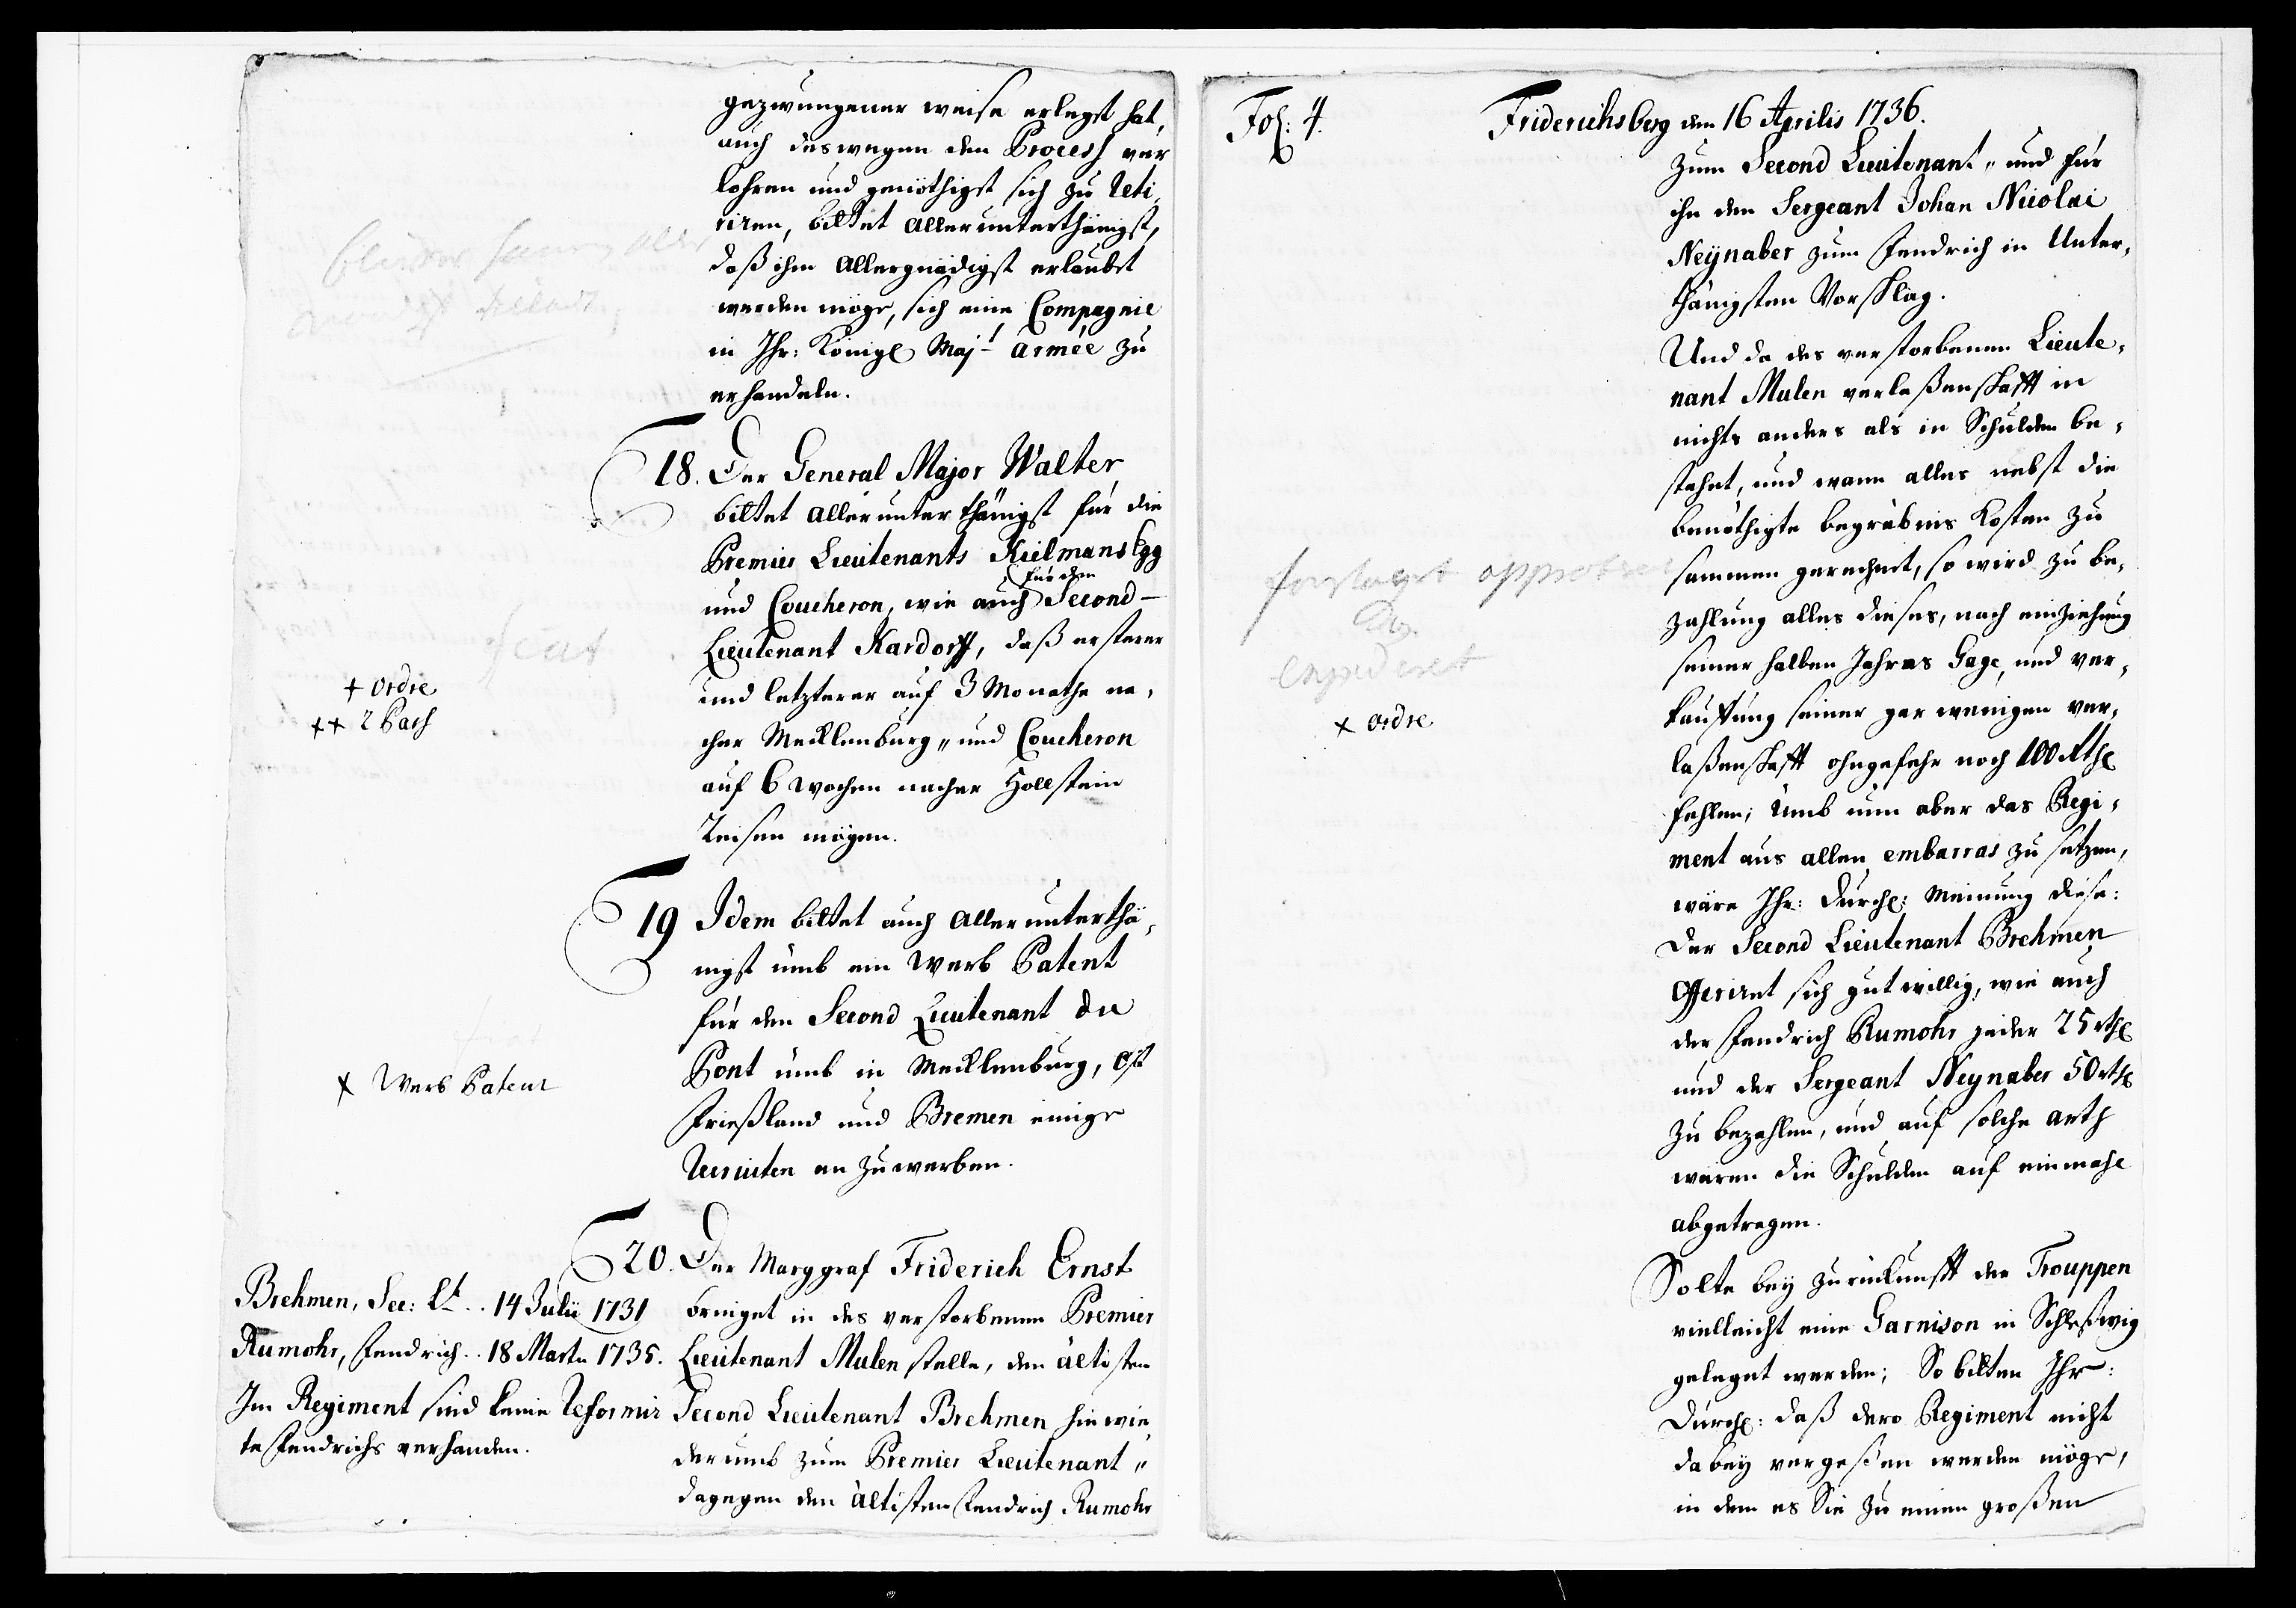 gezwungener weise erlegst hat,
auch deswegen den Process ver
lohren und genöthigst sich zu reti,
riren, bittet allerunterthänigst,
daß ihm allergnädigst erlaubt
werden möge, sich eine Compagnie
in Ihr: Königl Maj.t armée zu
erhandeln.
18. Der General Major Walter
bittet allerunterthänigst für die
Premier Lieutenants Kielmansegg
für den
und Coucheron, wie auch Second-
Lieutenant Kardorff, daß ersterer
und letzterer auf 3 Monathe na,
cher Mecklenburg, und Coucheron
auf 6 wochen nacher Hollstein
reisen mögen.
fiat
+ ordre
++ 2 Pass
19 Idem bittet auch allerunterthä,
nigst umb ein Werb Patent
für den Second Lieutenant du
Pont umb in Mecklenburg, Ost
Frießland und Bremen einige
recruten an zu werben.
+ Werb Patent
20. Der Marggraf Friderich Ernst
bringet in des verstorbenen Premier
Lieutenant Mulen stelle, den ältisten
Second Lieutenant Brehmen hinwie,
derumb zum Premier Lieutenant,
dagegen den ältisten Fendrich Rumohr
Brehmen, Sec: Lt. .. 14 Julii 1731
Rumohr, Fendrich .. 18 Marty 1735.
Im Regiment sind keine reformir
te Fendrichs verhanden.
Fol: 4. Friderichsberg den 16 Aprilis 1736.
zum Second Lieutenant, und für
ihn den Sergeant Johan Nicolai
Neÿnaber zum Fendrich in Unter,
thänigsten Vorschlag.
Und da des verstorbenen Lieute,
nant Mulen verlaßenschafft in
nichts anders als in Schulden be,
stehet, und wann alles nebst die
benöthigte begräbnis Kosten zu
sammen gerechnet, so wird zu be,
zahlung alles dieses, nach einziehung
seiner halben Jahres Gage, und ver,
kauffung seiner gar wenigen ver,
laßenschafft ohngefehr noch 100 Rthl
fehlen; Umb nun aber das Regi,
ment aus allen embarras zu setzen,
wäre Ihr: Durchl: Meinung diese:
Der Second Lieutenant Brehmen
Offeriret sich gutwillig, wie auch
der Fendrich Rumohr jeder 25 rthl
und der Sergeant Neynaber 50 rthl
zu bezahlen, und auf solche arth
wären die Schulden auf einmahl
abgetragen.
Solte beÿ zurückunfft der Trouppen
vielleicht eine Garnison in Schleßwig
geleget werden; So bitten Ihr:
Durchl: daß dero Regiment nicht
dabeÿ vergeßen werden möge,
in dem es Sie zu einen großen
forslaget approberet
expederet
+ ordre